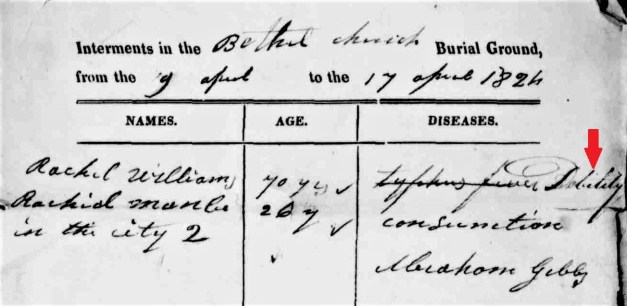 Interments in the Bethel church Burial Ground,
from the 9 april to the 17 april 1824
NAMES. AGE. DISEASES.
Rachel Williams 70 ys Typhus fever Debility
Rachid 26 y consumtion
in the city 2
Abraham Gibbs